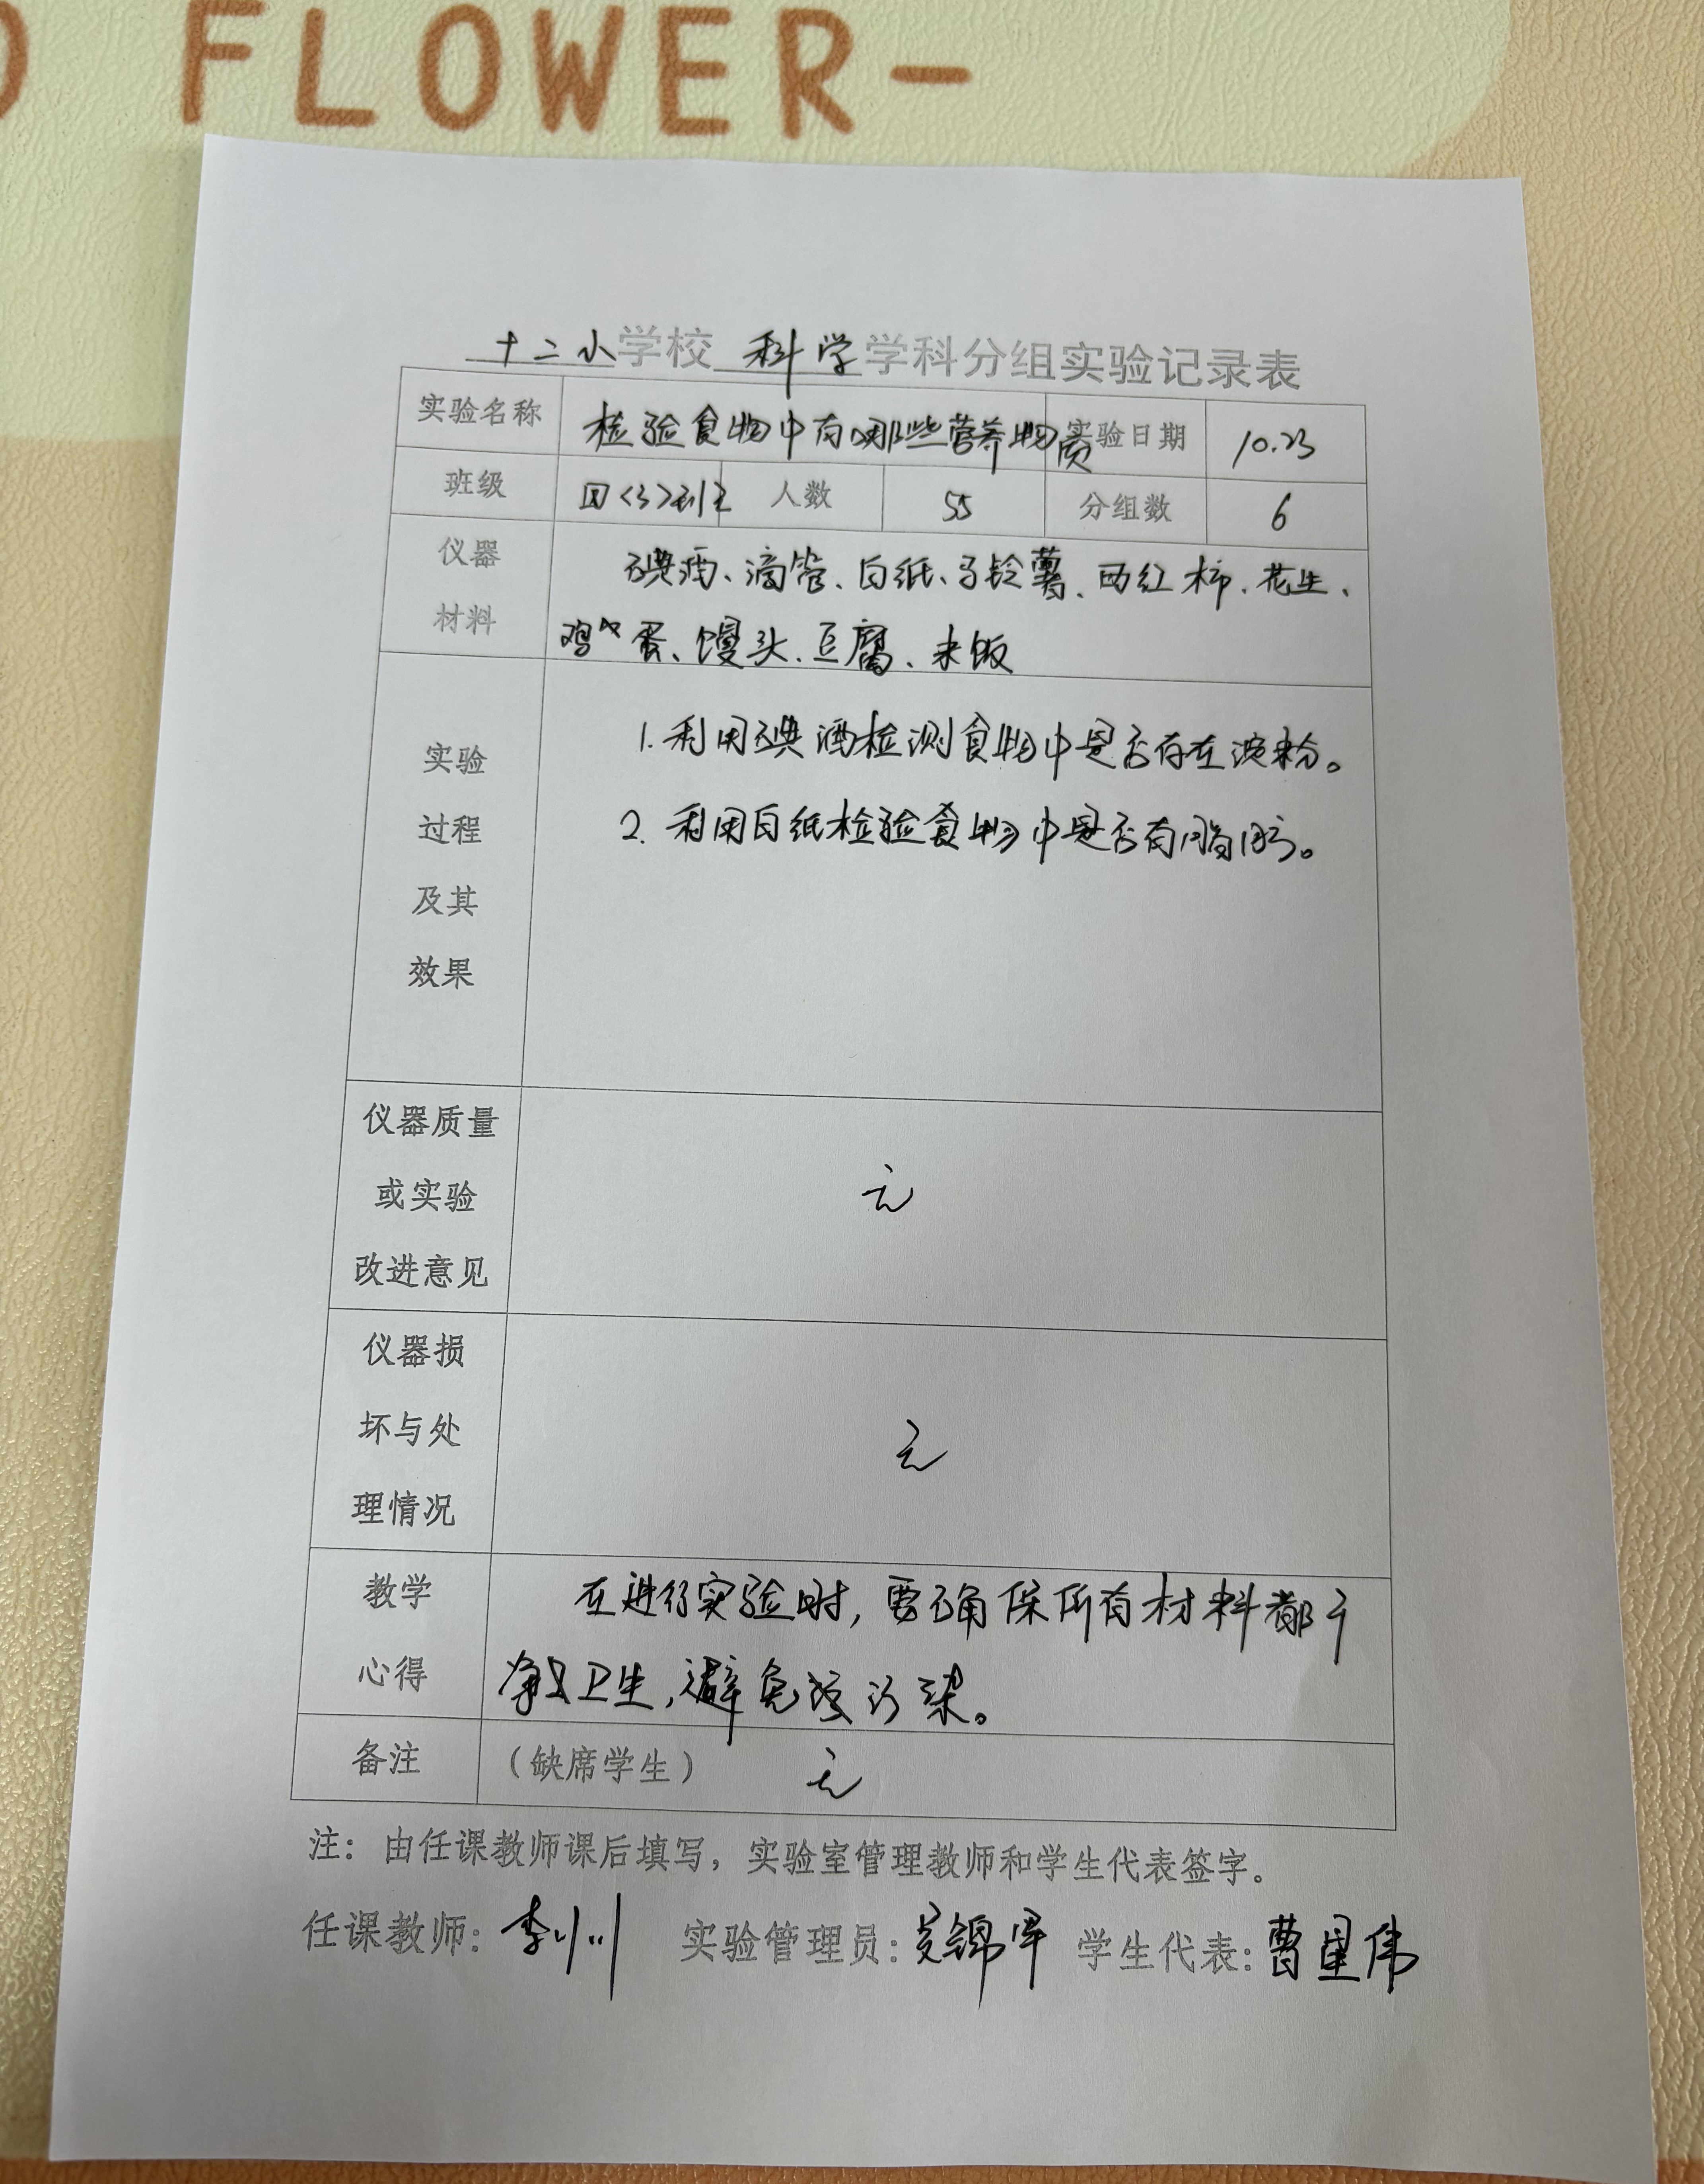 O FLOWER-
十二小学校 科学学科分组实验记录表
实验名称 检验食物中有哪些营养物质 实验日期 10.23
班级 四<3>班 人数 55 分组数 6
仪器 碘酒、滴管、白纸、马铃薯、西红柿、花生、
材料 鸡蛋、馒头、豆腐、米饭
1. 利用碘酒检测食物中是否存在淀粉。
实验
2. 利用白纸检验食物中是否有脂肪。
过程
及其
效果
仪器质量
或实验 无
改进意见
仪器损
坏与处 无
理情况
教学 在进行实验时,要确保所有材料都干
心得 净卫生,避免污染。
备注 (缺席学生) 无
注:由任课教师课后填写,实验室管理教师和学生代表签字。
任课教师: 李 实验管理员: 锦军 学生代表: 曹星伟